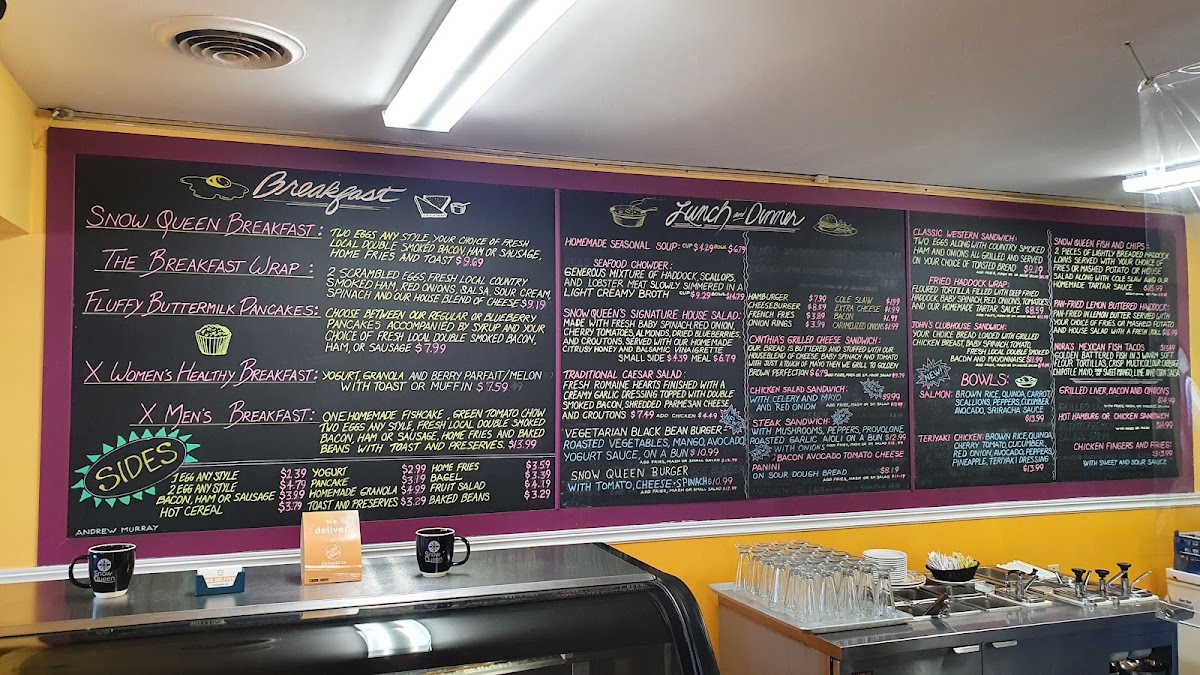 Breakfast
SNOW QUEEN BREAKFAST:
TWO EGGS ANY STYLE YOUR CHOICE OF FRESH
LOCAL DOUBLE SMOKED BACON, HAM OR SAUSAGE,
HOME FRIES AND TOAST $9.69
THE BREAKFAST WRAP:
2 SCRAMBLED EGGS FRESH LOCAL COUNTRY
SMOKED HAM, RED ONIONS, SALSA SOUR CREAM,
SPINACH AND OUR HOUSE BLEND OF CHEESE $9.19
FLUFFY BUTTERMILK PANCAKES:
CHOOSE BETWEEN OUR REGULAR OR BLUEBERRY
PANCAKES ACCOMPANIED BY SYRUP AND YOUR
CHOICE OF FRESH LOCAL DOUBLE SMOKED BACON,
HAM, OR SAUSAGE $7.99
X WOMEN'S HEALTHY BREAKFAST:
YOGURT, GRANOLA AND BERRY PARFAIT/MELON
WITH TOAST OR MUFFIN $7.59
X MEN'S BREAKFAST:
ONE HOMEMADE FISHCAKE, GREEN TOMATO CHOW
TWO EGGS ANY STYLE, FRESH LOCAL DOUBLE SMOKED
BACON, HAM OR SAUSAGE, HOME FRIES AND BAKED
BEANS WITH TOAST AND PRESERVES. $13.99
SIDES
1 EGG ANY STYLE $2.39
2 EGG ANY STYLE $4.79
BACON, HAM OR SAUSAGE $3.99
HOT CEREAL $3.79
YOGURT $2.99
PANCAKE $3.19
HOMEMADE GRANOLA $4.99
TOAST AND PRESERVES $3.29
HOME FRIES $3.59
BAGEL $3.39
FRUIT SALAD $4.19
BAKED BEANS $3.29
ANDREW MURRAY
Lunch and Dinner
HOMEMADE SEASONAL SOUP: CUP $4.29 BOWL $6.79
SEAFOOD CHOWDER:
GENEROUS MIXTURE OF HADDOCK, SCALLOPS,
AND LOBSTER MEAT SLOWLY SIMMERED IN A
LIGHT CREAMY BROTH CUP $9.29 BOWL $14.79
SNOW QUEEN'S SIGNATURE HOUSE SALAD:
MADE WITH FRESH BABY SPINACH, RED ONION,
CHERRY TOMATOES, ALMONDS, DRIED BLUEBERRIES,
AND CROUTONS, SERVED WITH OUR HOMEMADE
CITRUSY HONEY AND BALSAMIC VINAIGRETTE
SMALL SIDE $4.39 MEAL $6.79
TRADITIONAL CAESAR SALAD:
FRESH ROMAINE HEARTS FINISHED WITH A
CREAMY GARLIC DRESSING TOPPED WITH DOUBLE
SMOKED BACON, SHREDDED PARMESAN CHEESE
AND CROUTONS $7.49 ADD CHICKEN $4.49
VEGETARIAN BLACK BEAN BURGER-
ROASTED VEGETABLES, MANGO, AVOCADO,
YOGURT SAUCE, ON A BUN $10.99
ADD FRIES, MASH OR SMALL SALAD $2.99
SNOW QUEEN BURGER
WITH TOMATO, CHEESE + SPINACH $10.99
ADD FRIES, MASH OR SMALL $2.99
HAMBURGER $7.99
CHEESEBURGER $8.89
FRENCH FRIES $3.89
ONION RINGS $3.99
COLE SLAW $1.99
EXTRA CHEESE $1.99
BACON $1.99
CARAMELIZED ONIONS $1.99
CYNTHIA'S GRILLED CHEESE SANDWICH:
OUR BREAD IS BUTTERED AND STUFFED WITH OUR
HOUSE BLEND OF CHEESE, BABY SPINACH AND TOMATO
WITH JUST A TOUCH OF MAYO THEN WE GRILL TO GOLDEN
BROWN PERFECTION $6.79
CHICKEN SALAD SANDWICH:
WITH CELERY AND MAYO $9.99
AND RED ONION
STEAK SANDWICH:
WITH MUSHROOMS, PEPPERS, PROVOLONE,
ROASTED GARLIC AIOLI ON A BUN $12.99
WITH ONIONS
BACON AVOCADO TOMATO CHEESE
PANINI
ON SOUR DOUGH BREAD $8.19
ADD FRIES, MASH OR SMALL SALAD $2.99
CLASSIC WESTERN SANDWICH:
TWO EGGS ALONG WITH COUNTRY SMOKED
HAM AND ONIONS ALL GRILLED AND SERVED
ON YOUR CHOICE OF TOASTED BREAD $9.19
FRIED HADDOCK WRAP:
FLOURED TORTILLA FILLED WITH DEEP FRIED
HADDOCK, BABY SPINACH, RED ONIONS, TOMATOES,
AND OUR HOMEMADE TARTAR SAUCE $8.59
JOHN'S CLUBHOUSE SANDWICH:
YOUR CHOICE BREAD LOADED WITH GRILLED
CHICKEN BREAST, BABY SPINACH, TOMATO,
FRESH LOCAL DOUBLE SMOKED
BACON AND MAYONNAISE $11.99
BOWLS:
SALMON: BROWN RICE, QUINOA, CARROT,
SCALLIONS, PEPPERS, CUCUMBER
AVOCADO, SRIRACHA SAUCE
$13.99
TERIYAKI CHICKEN: BROWN RICE, QUINOA,
CHERRY TOMATO, CUCUMBER,
RED ONION, AVOCADO, PEPPERS,
PINEAPPLE, TERIYAKI DRESSING
$13.99
SNOW QUEEN FISH AND CHIPS:
2 PIECES OF LIGHTLY BREADED HADDOCK
LOINS SERVED WITH YOUR CHOICE OF
FRIES OR MASHED POTATO OR HOUSE
SALAD ALONG WITH COLE SLAW AND OUR
HOMEMADE TARTAR SAUCE
PAN-FRIED LEMON BUTTERED HADDOCK:
PAN-FRIED IN LEMON BUTTER SERVED WITH
YOUR CHOICE OF FRIES OR MASHED POTATO
AND HOUSE SALAD WITH A FRESH ROLL
NORA'S MEXICAN FISH TACOS
GOLDEN BATTERED FISH IN 3 WARM SOFT
GRILLED LIVER, BACON AND ONIONS
$14.99
HOT HAMBURG OR CHICKEN SANDWICH
$14.99
CHICKEN FINGERS AND FRIES:
WITH SWEET AND SOUR SAUCE
We
deliver
Snow
Queen
Snow
Queen